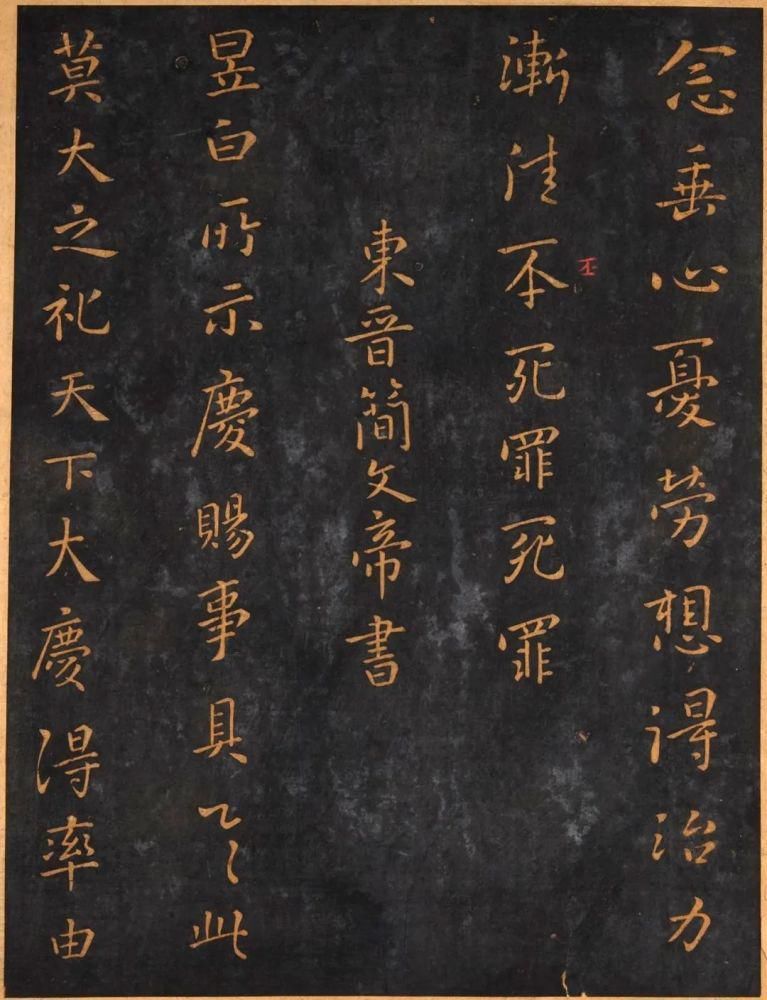 念垂心憂勞想得治力
漸佳丕死罪死罪
丕
東晉簡文帝書
昱白所示慶賜事具此
莫大之祀天下大慶得率由